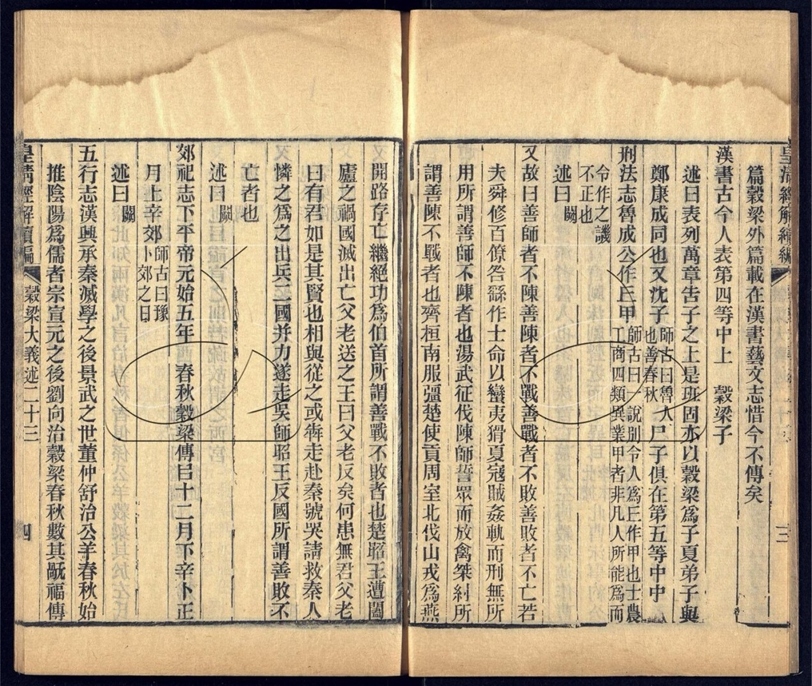 皇清經解續編
三
篇穀梁外篇載在漢書藝文志惜今不傳矣
漢書古今人表第四等中上　穀梁子
述曰表列萬章告子之上是班固亦以穀梁爲子夏弟子與
鄭康成同也又沈子師古曰魯人也善春秋尸子俱在第五等中中
刑法志魯成公作丘甲師古曰一說別令人爲丘作甲也士農工商四類異業甲者非凡人所能爲而
令作之譏不正也
述曰闕
又故曰善師者不陳善陳者不戰善戰者不敗善敗者不亡若
夫舜修百僚咎繇作士命以蠻夷猾夏寇賊姦軌而刑無所
用所謂善師不陳者也湯武征伐陳師誓眾而放禽桀紂所
謂善陳不戰者也齊桓南服彊楚使貢周室北伐山戎爲燕
開路存亡繼絕功爲伯首所謂善戰不敗者也楚昭王遭闔
廬之禍國滅出亡父老送之王曰父老反矣何患無君父老
曰有君如是其賢也相與從之或犇走赴秦號哭請救秦人
憐之爲之出兵二國并力遂走吳師昭王反國所謂善敗不
亡者也
述曰闕
郊祀志下平帝元始五年春秋穀梁傳㠯十二月下辛卜正
月上辛郊師古曰豫卜郊之日
述曰闕
五行志漢興承秦滅學之後景武之世董仲舒治公羊春秋始
推陰陽爲儒者宗宣元之後劉向治穀梁春秋數其旤福傳
皇清經解續編
穀梁大義述二十三
四